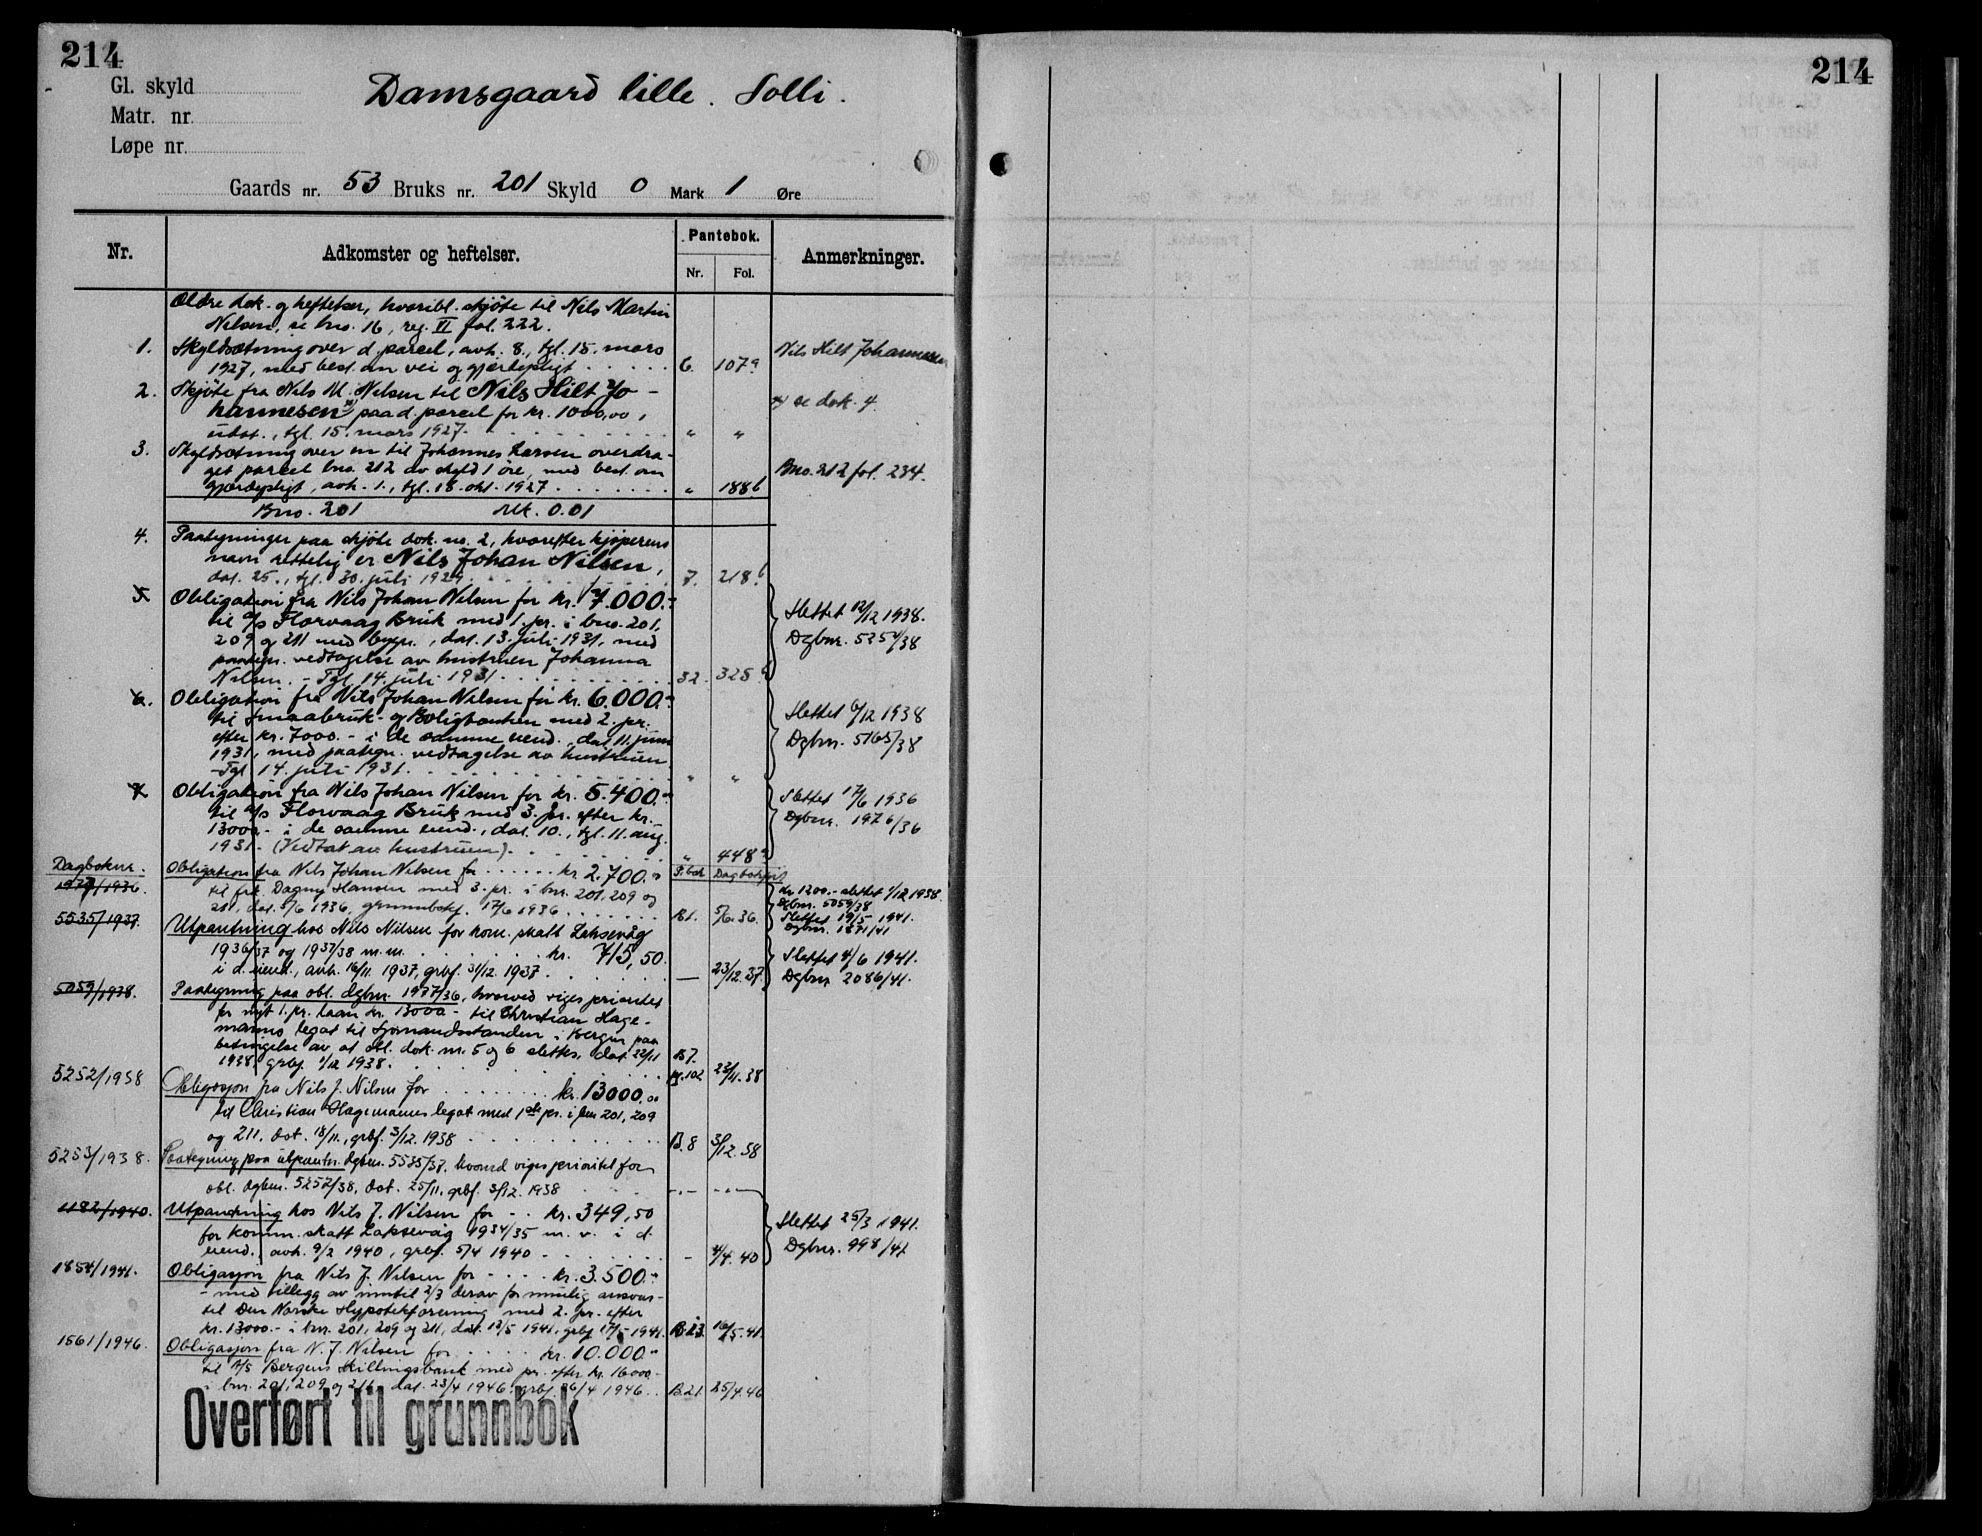 214
Gl. skyld
Matr. nr.
Løpe nr.
Damsgaard lille. Solli.
Gaards nr. 53 Bruks nr. 201 Skyld 0 Mark 1 Øre
Nr. Adkomster og heftelser. Pantebok. Nr. Fol. Anmerkninger.
Ældre dok. og heftelser, hvoribl. skjøte til Nils Martin
Nilsen, se bno. 16, reg. II fol. 222.
1. Skyldsætning over d. parcel, avh. 8., tgl. 15. mars
1927, med best. om vei og gjærdepligt 6. 107a Nils Hilt Johannesen
2. Skjøte fra Nils M. Nilsen til Nils Hilt Jo-
hannesen x) paa d. parcel for kr. 1000,00, x) se dok. 4.
udat., tgl. 15. mars 1927. " "
3. Skyldsætning over en til Johannes Larsen overdra-
get parcel bno. 212 av skyld 1 øre, med best. om Bno. 212 fol. 234.
gjærdepligt, avh. 1., tgl. 18. okt. 1927 " 188b
Bno. 201 Mk. 0.01
4. Paategninger paa skjøte dok. no. 2, hvorefter kjøperens
navn rettelig er Nils Johan Nilsen,
dat. 25., tgl. 30. juli 1929 7. 218b
5. Obligation fra Nils Johan Nilsen for kr. 7.000.-
til a/s Florvaag Bruk med 1. pr. i bno. 201, Slettet 12/12 1938.
209 og 211 med bygn., dat. 13. juli 1931, med Dgbnr. 5254/38
paategn. vedtagelse av hustruen Johanna
Nilsen. - Tgl. 14. juli 1931 32. 325b
6. Obligation fra Nils Johan Nilsen for kr. 6.000.-
til Smaabruk- og Boligbanken med 2. pr. Slettet 6/12 1938
efter kr. 7000.- i de samme eiend., dat. 11. juni Dgbnr. 5165/38
1931, med paategn. vedtagelse av hustruen
- Tgl. 14. juli 1931. " "
7. Obligation fra Nils Johan Nilsen for kr. 5.400.- Slettet 17/6 1936
til a/s Florvaag Bruk med 3. pr. efter kr. Dgbnr. 1976/36
13000.- i de samme eiend., dat. 10., tgl. 11. aug.
1931.- (Vedtat av hustruen). " 448a
Dagboknr. Obligation fra Nils Johan Nilsen for kr. 2.700.- P.bok Dagbokført
1977/1936. til frk. Dagny Hansen med 3. pr. i bnr. 201, 209 og kr. 1200.- slettet 1/12 1938.
211, dat. 5/6 1936, grunnbokf. 17/6 1936 B1. 5/6.36. Dgbnr. 5059/38
Slettet 19/5 1941.
Dgbnr. 1871/41
5535/1937. Utpantning hos Nils Nilsen for kom. skatt Laksevåg
1936/37 og 1937/38 m.m. kr. 715,50. Slettet 4/6 1941.
i d. eiend., avh. 16/11 1937, grbf. 31/12 1937 — 23/12.37. Dgbnr. 2086/41.
5059/1938. Paategning paa obl. dgbnr. 1977/36, hvorved viges prioritet
for nyt 1. pr. laan kr. 13000.- til Christian Hage-
manns legat til Sjømandsstanden i Bergen paa
betingelse av at obl. dok. nr. 5 og 6 slettes, dat. 22/11
1938, grbf. 1/12 1938. B7. pg. 102 23/11.38
5252/1938 Obligasjon fra Nils J. Nilsen for kr. 13000,00
til Christian Hagemannes legat med 1ste pr. i bnr 201, 209
og 211. Dat. 18/11., grbf. 3/12. 1938 B.8 3/12.38
5253/1938. Paategning paa utpantn. dgbnr. 5535/37. hvorved viges prioritet for
obl. dgbnr. 5252/38, dat. 25/11, grbf. 3/12. 1938 -"- -"-
1182/1940. Utpantning hos Nils J. Nilsen for kr. 349,50
for komm. skatt Laksevåg 1934/35 m.v. i d. Slettet 25/3 1941.
eiend., avh. 9/2 1940, grbf. 5/4 1940 - 4/4.40 Dgbnr. 998/41
1854/1941. Obligasjon fra Nils J. Nilsen for kr. 3.500.-
- med tillegg av inntil 2/3 derav for mulig ansvar -
til Den Norske Hypotekforening med 2. pr. efter
kr. 13000.- i bnr. 201, 209 og 211, dat. 12/5 1941, grbf. 17/5 1941. B.13. 16/5.41.
1561/1946. Obligasjon fra N. J. Nilsen for kr. 10.000.-
til A/S Bergens Skillingsbank med pr. efter kr. 16000.-
i bnr. 201, 209 og 211, dat. 23/4 1946, grbf. 26/4 1946. B.21. 25/4.46
Overført til grunnbok
214